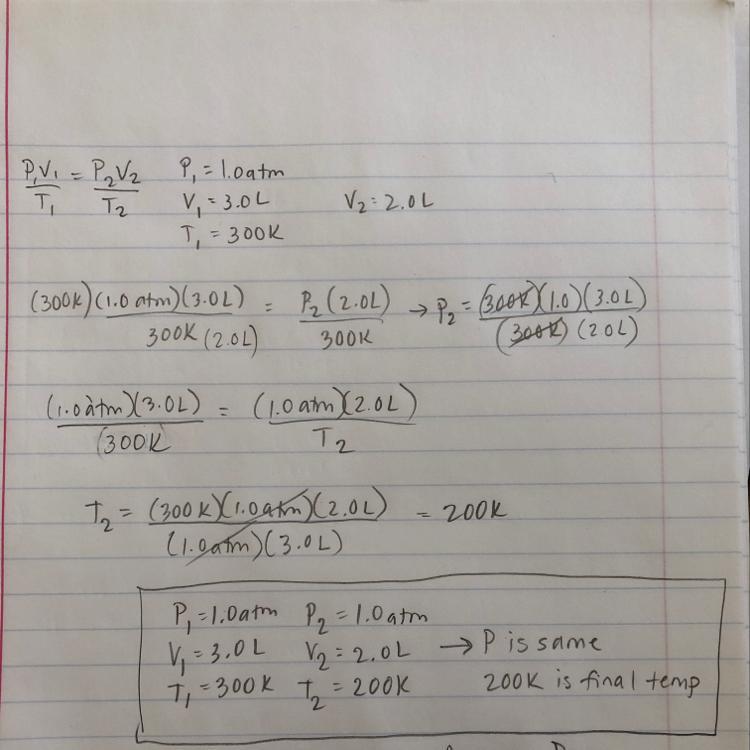 P₁V₁/T₁ = P₂V₂/T₂ P₁ = 1.0atm
V₁ = 3.0L V₂ = 2.0L
T₁ = 300K
(300K)(1.0 atm)(3.0L)/300K (2.0L) = P₂(2.0L)/300K → P₂ = (300K)(1.0)(3.0L)/(300K)(2.0L)
(1.0atm)(3.0L)/(300K = (1.0atm)(2.0L)/T₂
T₂ = (300K)(1.0atm)(2.0L)/(1.0atm)(3.0L) = 200K
P₁ = 1.0atm P₂ = 1.0atm
V₁ = 3.0L V₂ = 2.0L → P is same
T₁ = 300K T₂ = 200K 200K is final temp